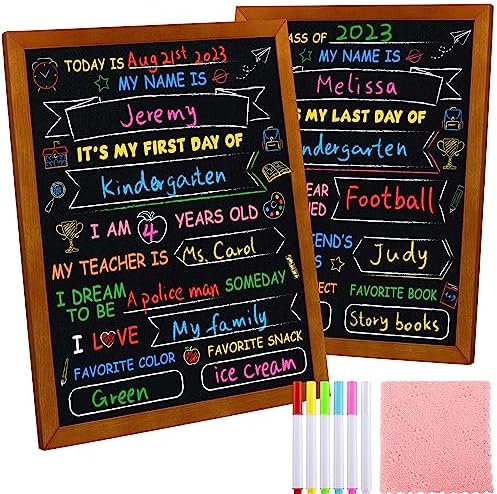 TODAY IS Aug 21st 2023
MY NAME IS
Jeremy
IT'S MY FIRST DAY OF
Kindergarten
I AM 4 YEARS OLD
MY TEACHER IS Ms. Carol
I DREAM TO BE A police man SOMEDAY
I LOVE My family
FAVORITE COLOR
Green
FAVORITE SNACK
ice cream
ASS OF 2023
MY NAME IS
Melissa
MY LAST DAY OF
ndergarten
EAR
NED
Football
END'S
Judy
ECT
FAVORITE BOOK
Story books